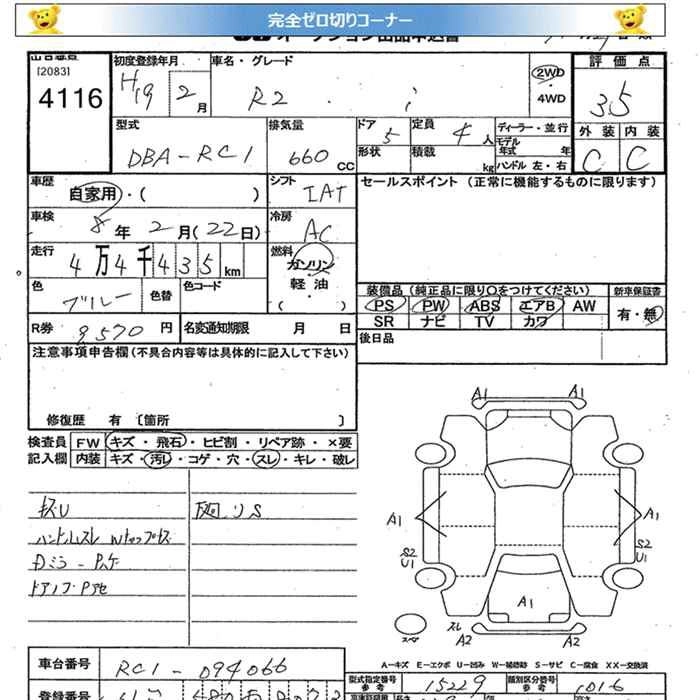 完全ゼロ切りコーナー
オークション出品申込書
出品番号
[2083]
4116
初度登録年月
H19 2月
車名・グレード
R2 i
2WD
・
4WD
評価点
3.5
型式
DBA-RC1
排気量
660 CC
ドア 5
形状
定員 4人
積載 kg
ディーラー・並行
モデル年式 年
ハンドル 左・右
外装 内装
C C
車歴
自家用・( )
シフト
IAT
セールスポイント (正常に機能するものに限ります)
車検
8年 2月(22日)
冷房
AC
走行
4万4千435km
燃料
ガソリン
軽・油
( )
色
ブルー
色替
色コード
装備品(純正品に限り○をつけてください)
新車保証書
PS PW ABS エアB AW
有・無
SR ナビ TV カワ
R券 9570円
名変通知期限 月 日
後日品
注意事項申告欄(不具合内容等は具体的に記入して下さい)
修復歴 有 〔箇所 〕
検査員
記入欄
FW キズ・飛石・ヒビ割・リペア跡・×要
内装 キズ・汚れ・コゲ・穴・スレ・キレ・破レ
A1 A1
A1 A1
S2
U1
S2
U1
A1
スレ
A2 A2
スペア
A-キズ E-エクボ U-凹み W-補修跡 S-サビ C-腐食 XX-交換済
車台番号
RC1-094066
型式指定番号
参考
15229
類別区分番号
参考
1016
登録番号